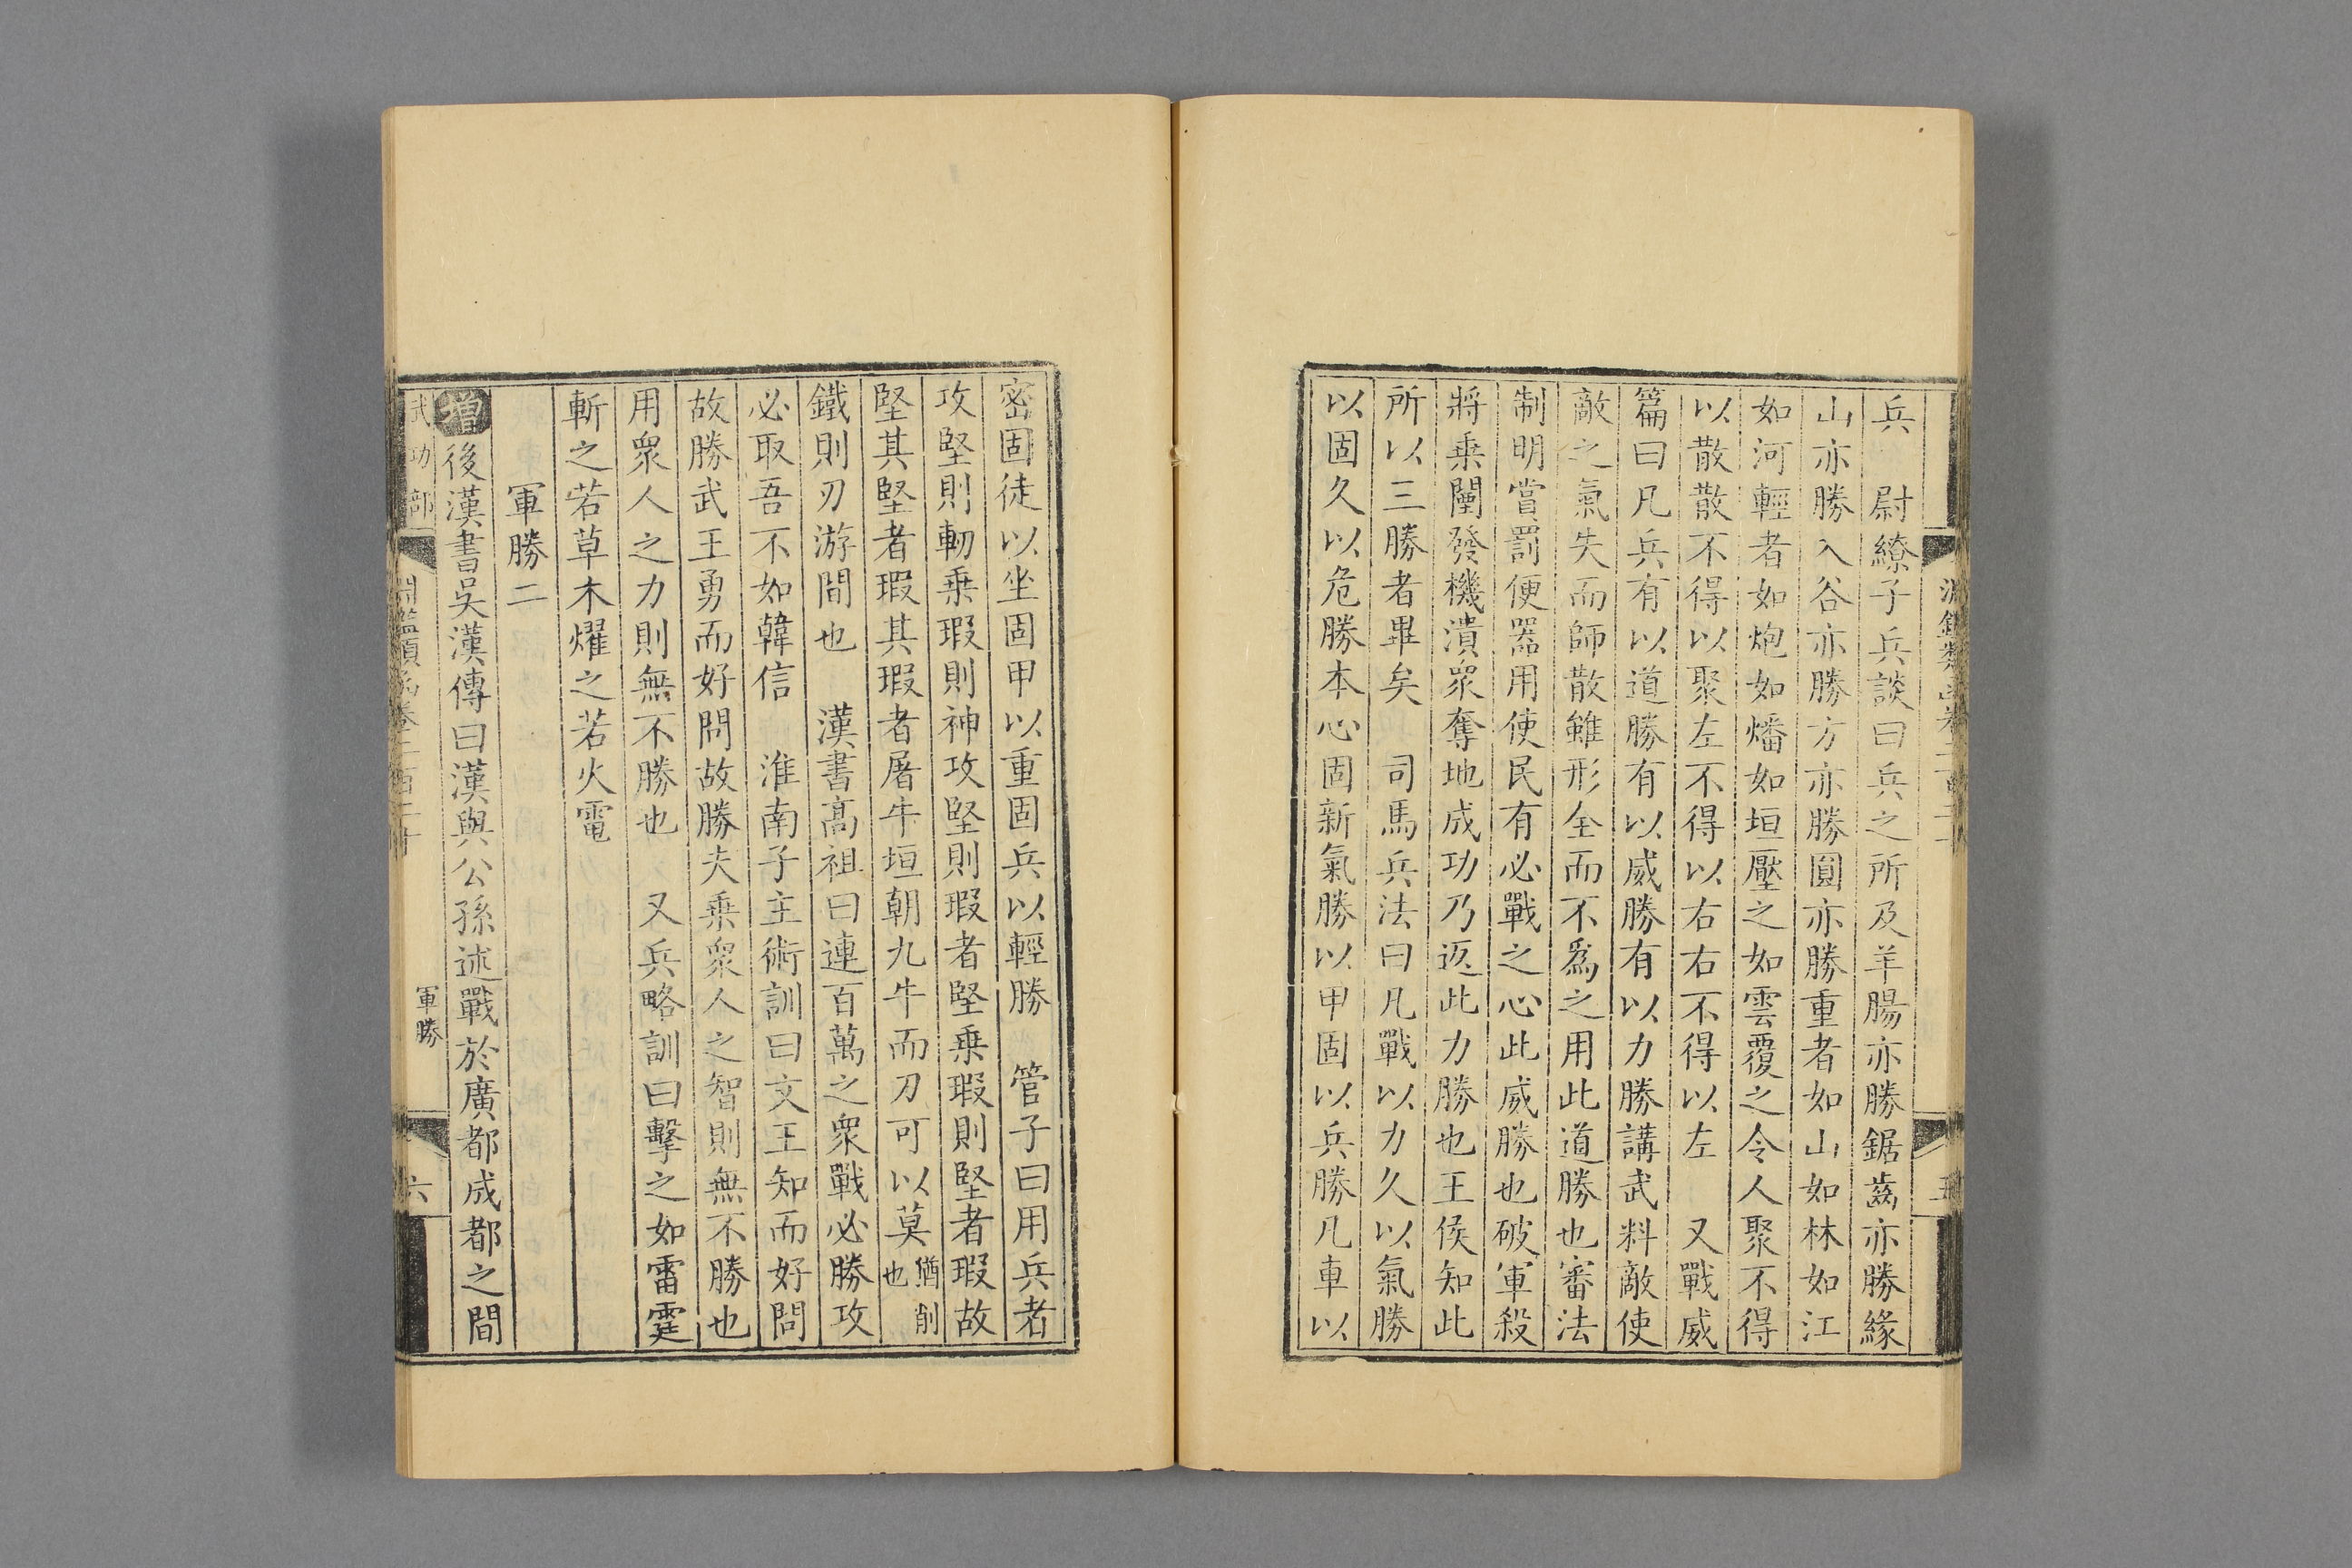 兵　尉繚子兵談曰兵之所及羊腸亦勝鋸齒亦勝緣
山亦勝入谷亦勝方亦勝圓亦勝重者如山如林如江
如河輕者如炮如燔如垣壓之如雲覆之令人聚不得
以散散不得以聚左不得以右右不得以左　又戰威
篇曰凡兵有以道勝有以威勝有以力勝講武料敵使
敵之氣失而師散雖形全而不爲之用此道勝也審法
制明賞罰便器用使民有必戰之心此威勝也破軍殺
將乗闉發機潰衆奪地成功乃返此力勝也王侯知此
所以三勝者畢矣　司馬兵法曰凡戰以力久以氣勝
以固久以危勝本心固新氣勝以甲固以兵勝凡車以
密固徒以坐固甲以重固兵以輕勝　管子曰用兵者
攻堅則軔乗瑕則神攻堅則瑕者堅乗瑕則堅者瑕故
堅其堅者瑕其瑕者屠牛垣朝九牛而刀可以莫猶削也
鐵則刃游間也　漢書髙祖曰連百萬之衆戰必勝攻
必取吾不如韓信　淮南子主術訓曰文王知而好問
故勝武王勇而好問故勝夫乗衆人之智則無不勝也
用衆人之力則無不勝也　又兵略訓曰擊之如雷霆
斬之若草木燿之若火電
軍勝二
增後漢書吳漢傳曰漢與公孫述戰於廣都成都之間
武功部
淵鑑類函卷二百二十
軍勝
六